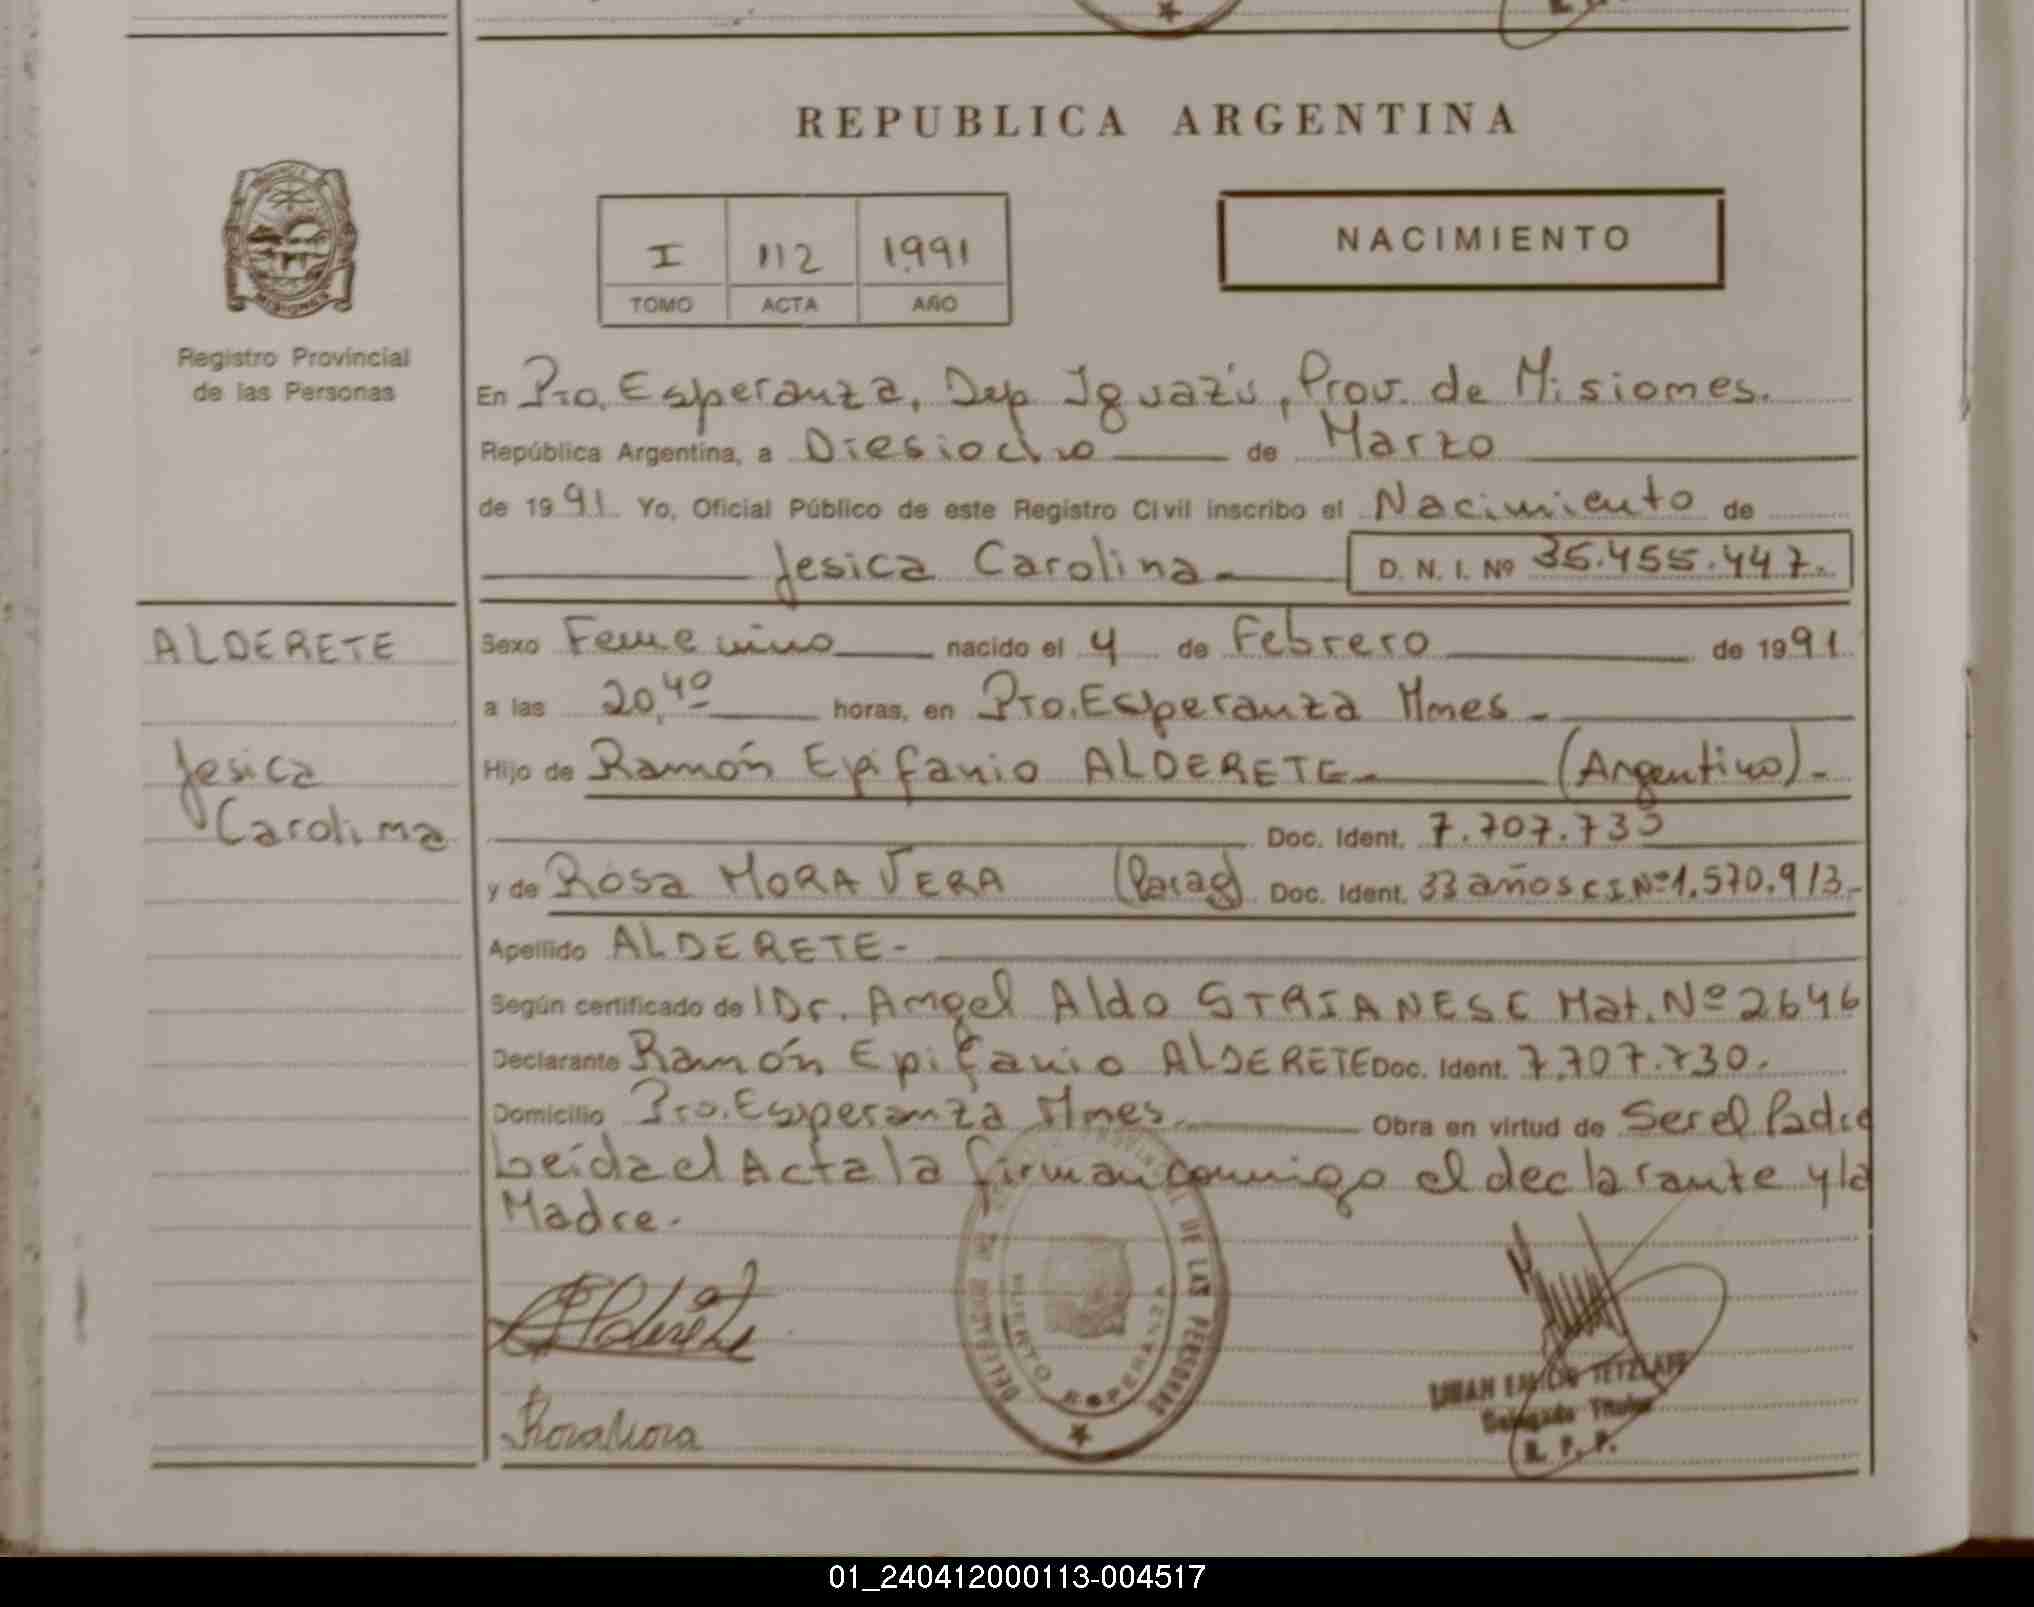 REPUBLICA ARGENTINA
I 112 1991
TOMO ACTA AÑO
NACIMIENTO
MISIONES
Registro Provincial
de las Personas
En Pto. Esperanza, Dep Iguazú, Prov. de Misiones.
República Argentina, a Diesiocho de Marzo
de 1991 Yo, Oficial Público de este Registro Civil inscribo el Nacimiento de
Jesica Carolina D. N. I. Nº 35.455.447.
ALDERETE
Jesica
Carolina
Sexo Femenino nacido el 4 de Febrero de 1991
a las 20,40 horas, en Pto. Esperanza Mnes -
Hijo de Ramón Epifanio ALDERETE (Argentino).-
Doc. Ident. 7.707.730
y de Rosa MORA VERA (Parag) Doc. Ident. 33 años C I Nº 1.570.913.-
Apellido ALDERETE-
Según certificado de l Dr. Angel Aldo Mat. Nº 2646
Declarante Ramón Epifanio ALDERETE Doc. Ident. 7.707.730.
Domicilio Pto. Esperanza Mnes. Obra en virtud de Ser el Padre
Leída el Acta la firman conmigo el declarante y la
Madre.-
Alderete
Rosa Mora
DE LAS PERSONAS
PUERTO ESPERANZA
TETZLAFF
Delegado Titular
R. P. P.
01_240412000113-004517